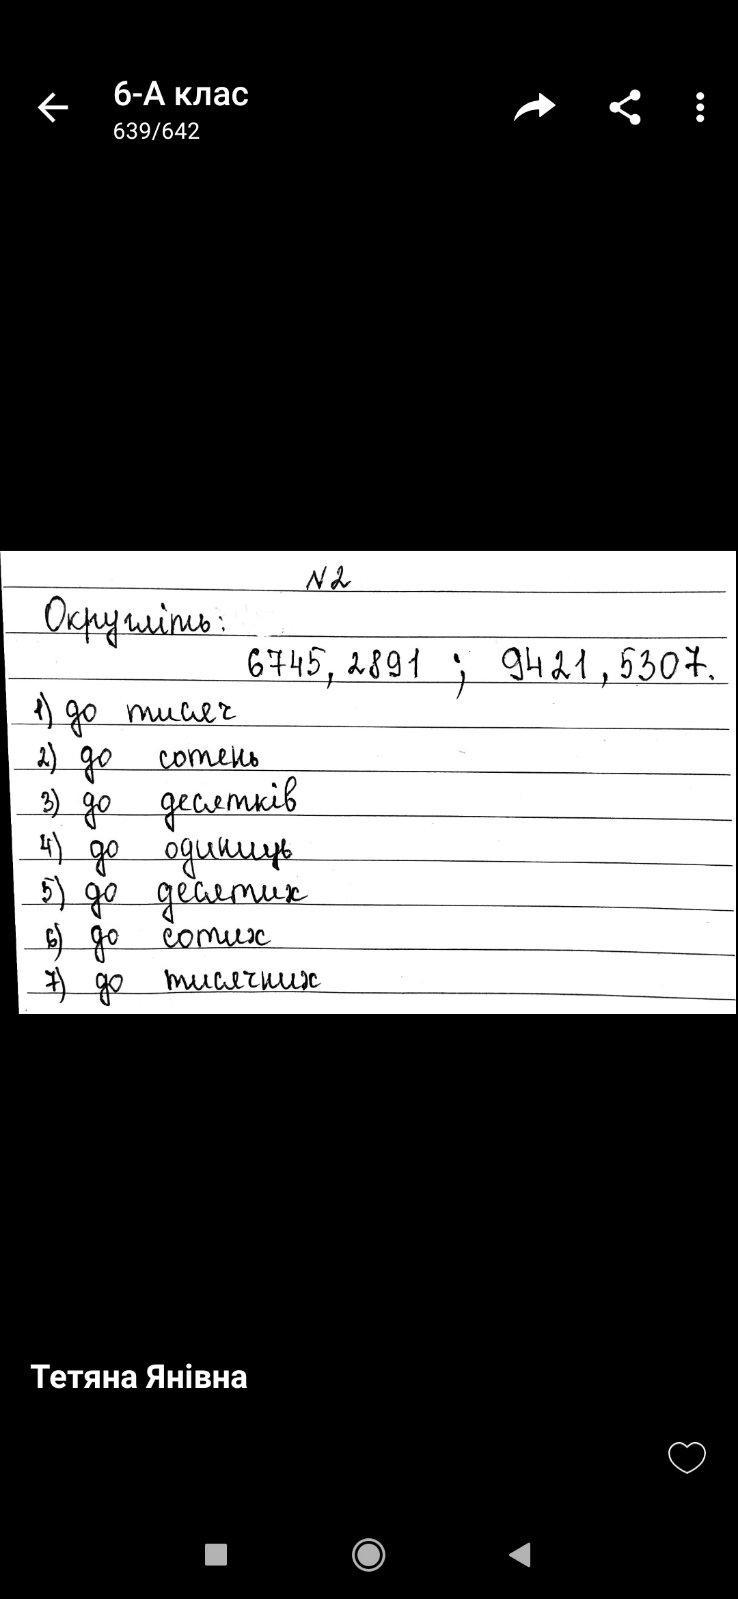 6-А клас
639/642
N2
Округліть:
6745,2891 ; 9421,5307.
1) до тисяч
2) до сотень
3) до десятків
4) до одиниць
5) до десятих
6) до сотих
7) до тисячних
Тетяна Янівна